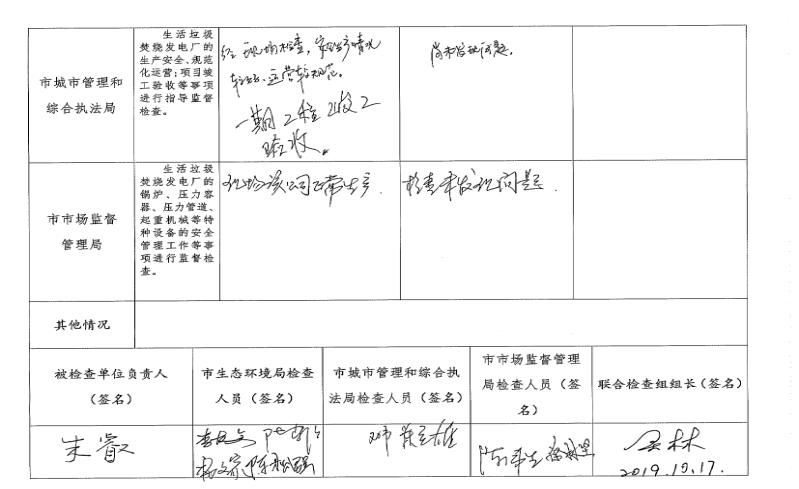 市城市管理和
综合执法局
生活垃圾
焚烧发电厂的
生产安全、规范
化运营；项目竣
工验收等事项
进行指导监督
检查。
经现场检查，安全生产情况
较好、运营较规范。
一期工程已竣工
验收。
尚未发现问题。
市市场监督
管理局
生活垃圾
焚烧发电厂的
锅炉、压力容
器、压力管道、
起重机械等特
种设备的安全
管理工作等事
项进行监督检
查。
现场该公司正常生产.
检查未发现问题.
其他情况
被检查单位负责人
（签名）
市生态环境局检查
人员（签名）
市城市管理和综合执
法局检查人员（签名）
市市场监督管理
局检查人员（签
名）
联合检查组组长（签名）
朱睿
2019.10.17.